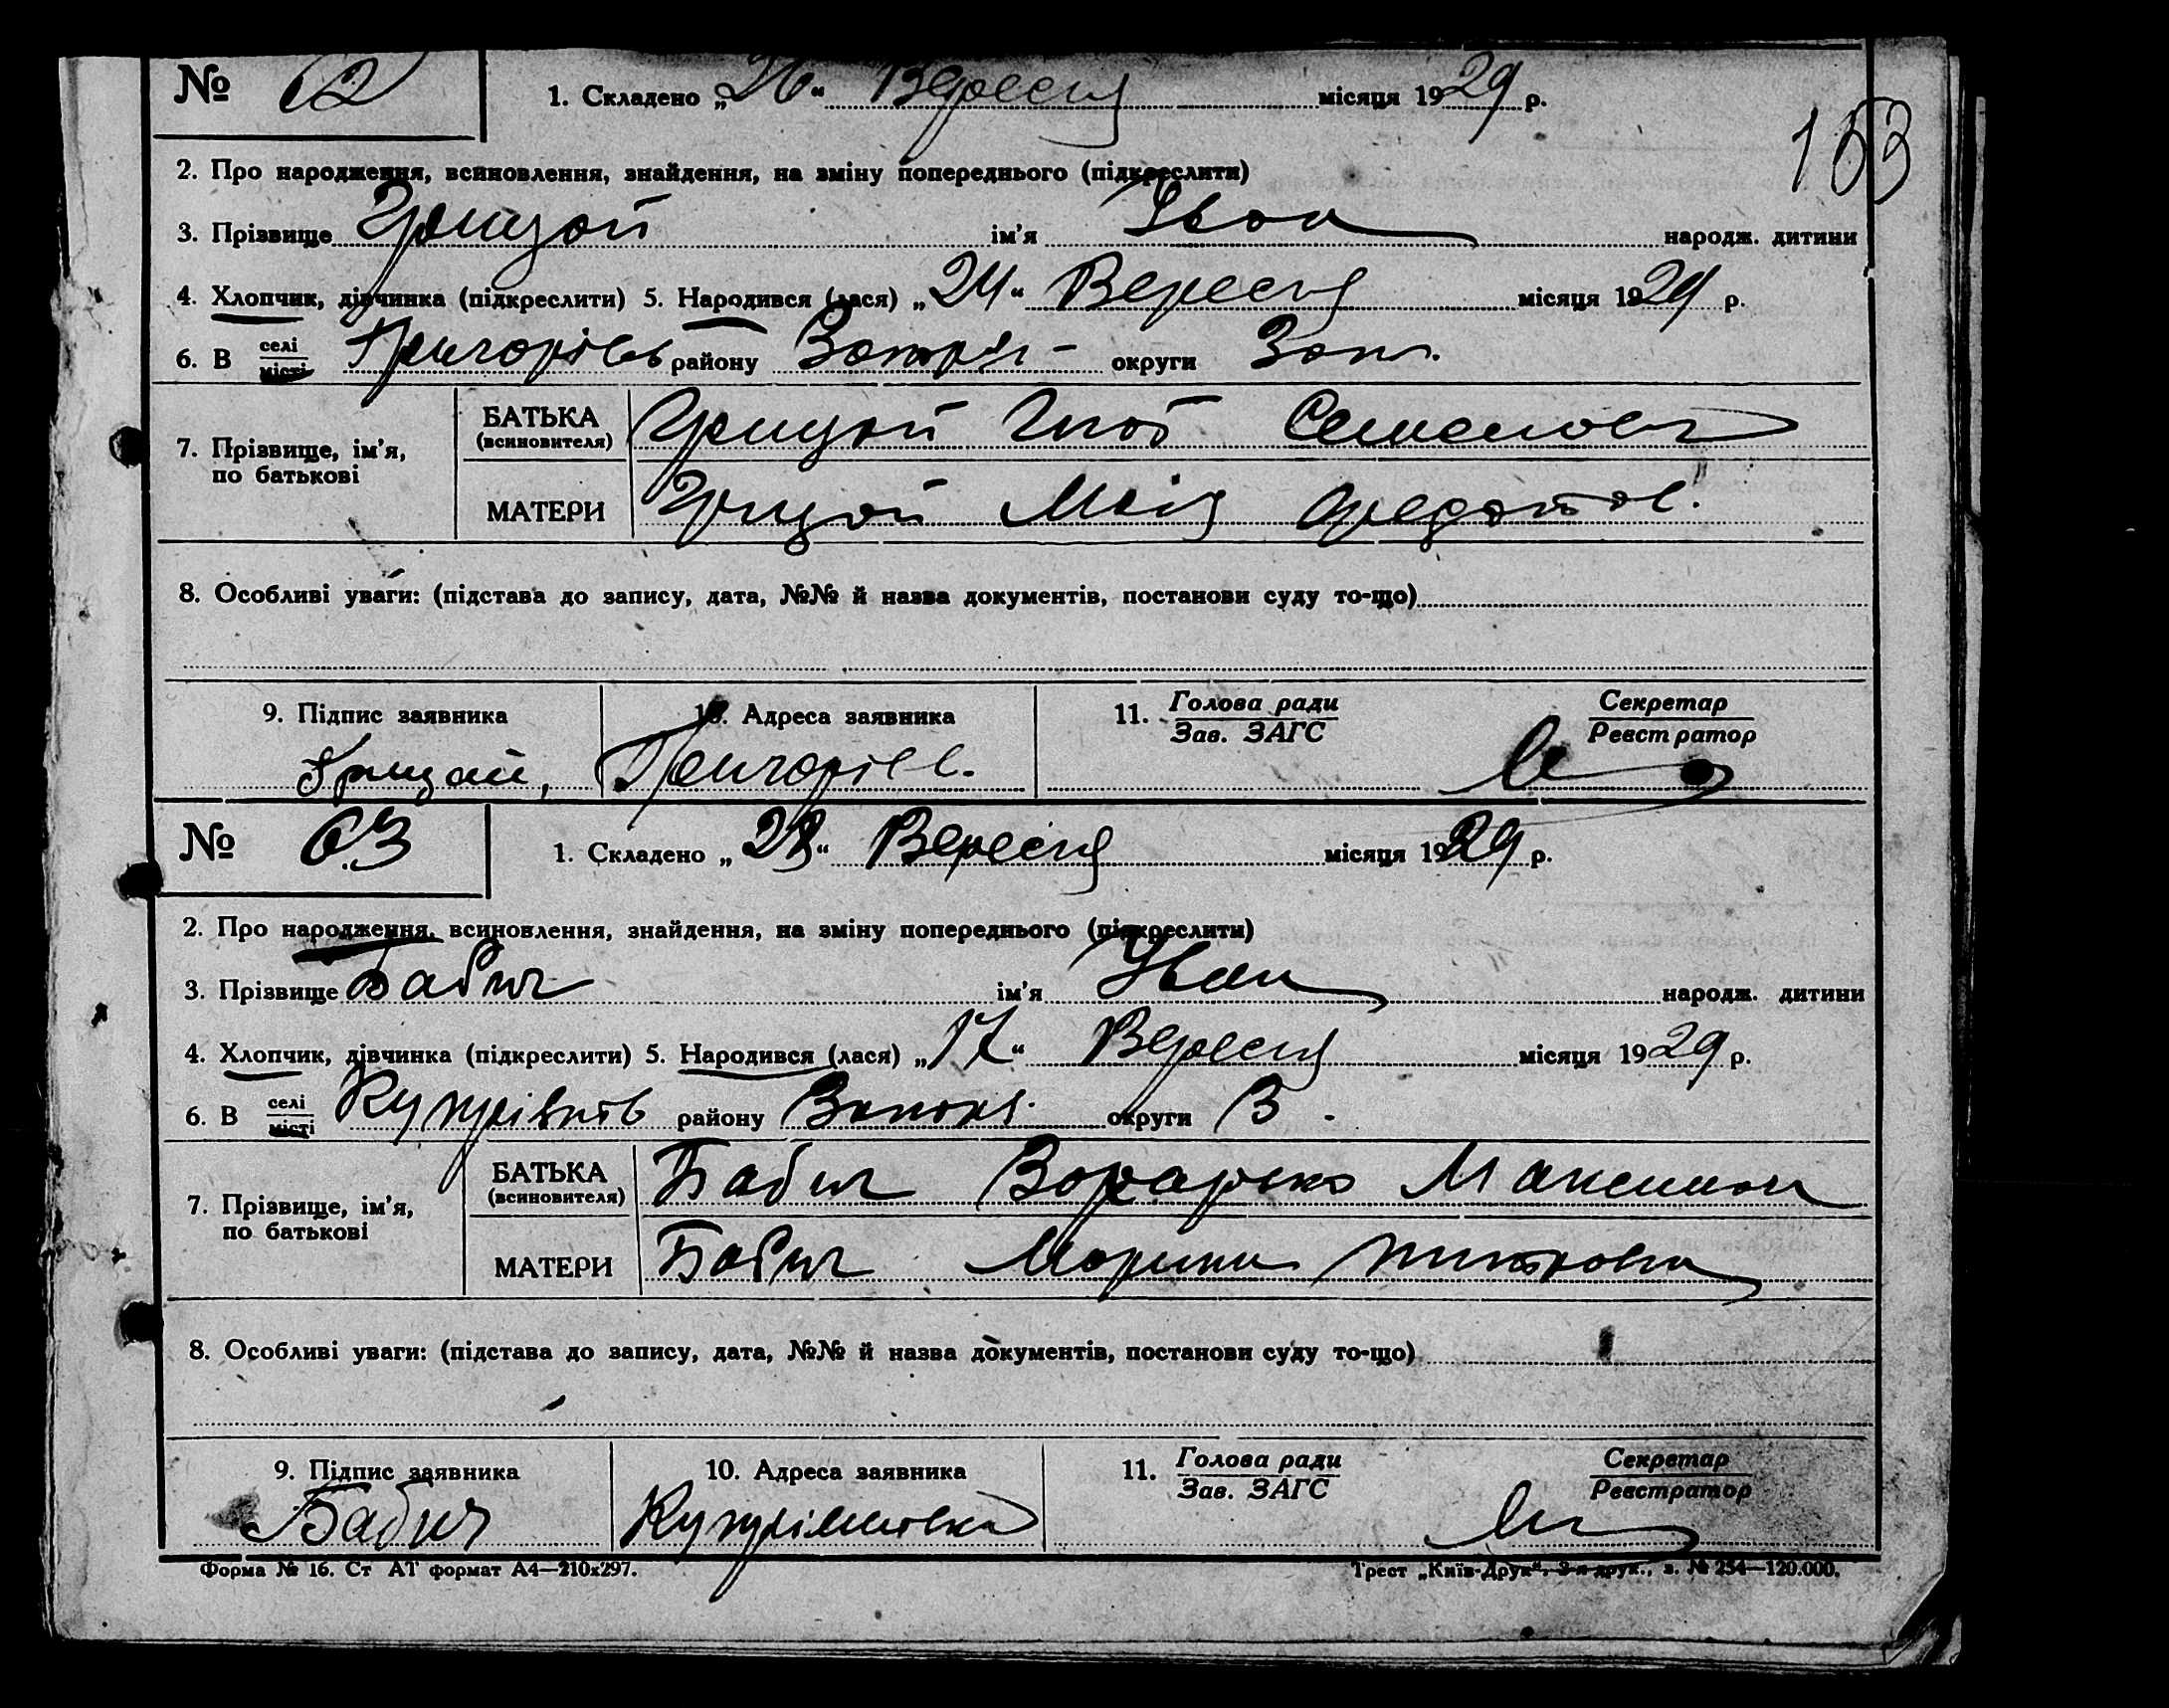 № 62 1. Складено „26“ Вересня місяця 1929 р.
153
2. Про народження, всиновлення, знайдення, на зміну попереднього (підкреслити)
3. Прізвище Грицай ім’я Іван народж. дитини
4. Хлопчик, дівчинка (підкреслити) 5. Народився (лася) „24“ Вересня місяця 1929 р.
6. В селі місті району округи Зап.
7. Прізвище, ім’я, по батькові
БАТЬКА (всиновителя) Грицай Гнат Семенович
МАТЕРИ Грицай Федотов.
8. Особливі уваги: (підстава до запису, дата, №№ й назва документів, постанови суду то-що)
9. Підпис заявника 10. Адреса заявника 11. Голова ради Зав. ЗАГС Секретар Реєстратор
Грицай, Григорівс.
№ 63 1. Складено „28“ Вересня місяця 1929 р.
2. Про народження, всиновлення, знайдення, на зміну попереднього (підкреслити)
3. Прізвище Бабич ім’я Іван народж. дитини
4. Хлопчик, дівчинка (підкреслити) 5. Народився (лася) „17“ Вересня місяця 1929 р.
6. В селі місті району округи З.
7. Прізвище, ім’я, по батькові
БАТЬКА (всиновителя) Бабич Максимов
МАТЕРИ Бабич Марина
8. Особливі уваги: (підстава до запису, дата, №№ й назва документів, постанови суду то-що)
9. Підпис заявника 10. Адреса заявника 11. Голова ради Зав. ЗАГС Секретар Реєстратор
Бабич
Форма № 16. Ст АТ формат А4—210х297. Трест „Київ-Друк“, 3-я друк., з. № 254—120.000.